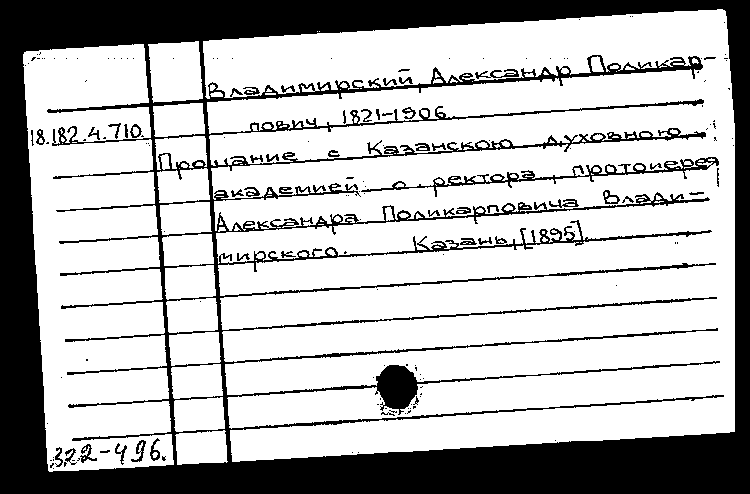 Владимирский, Александр Поликар-
пович, 1821-1906.
18.182.4.710.
Прощание с Казанскою духовною
академией о. ректора, протоиерея
Александра Поликарповича Влади-
мирского. Казань, [1895].
322-496.